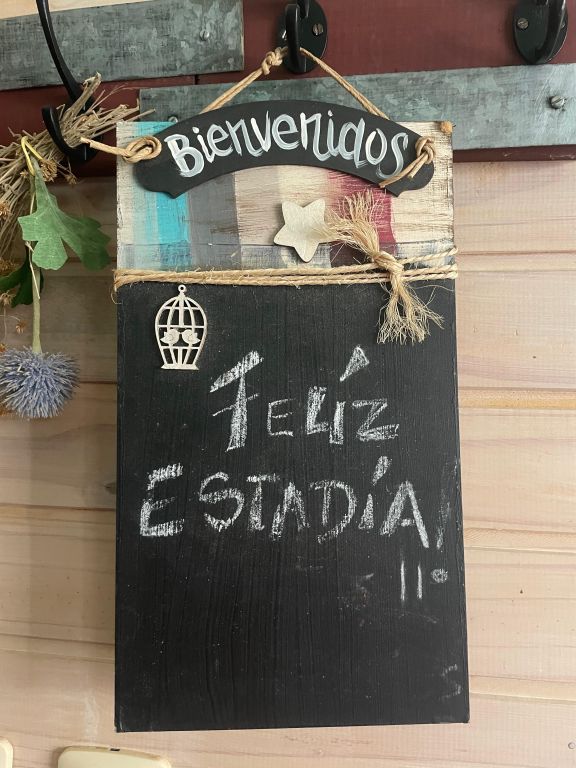 Bienvenidos
FELÍZ
ESTADÍA!